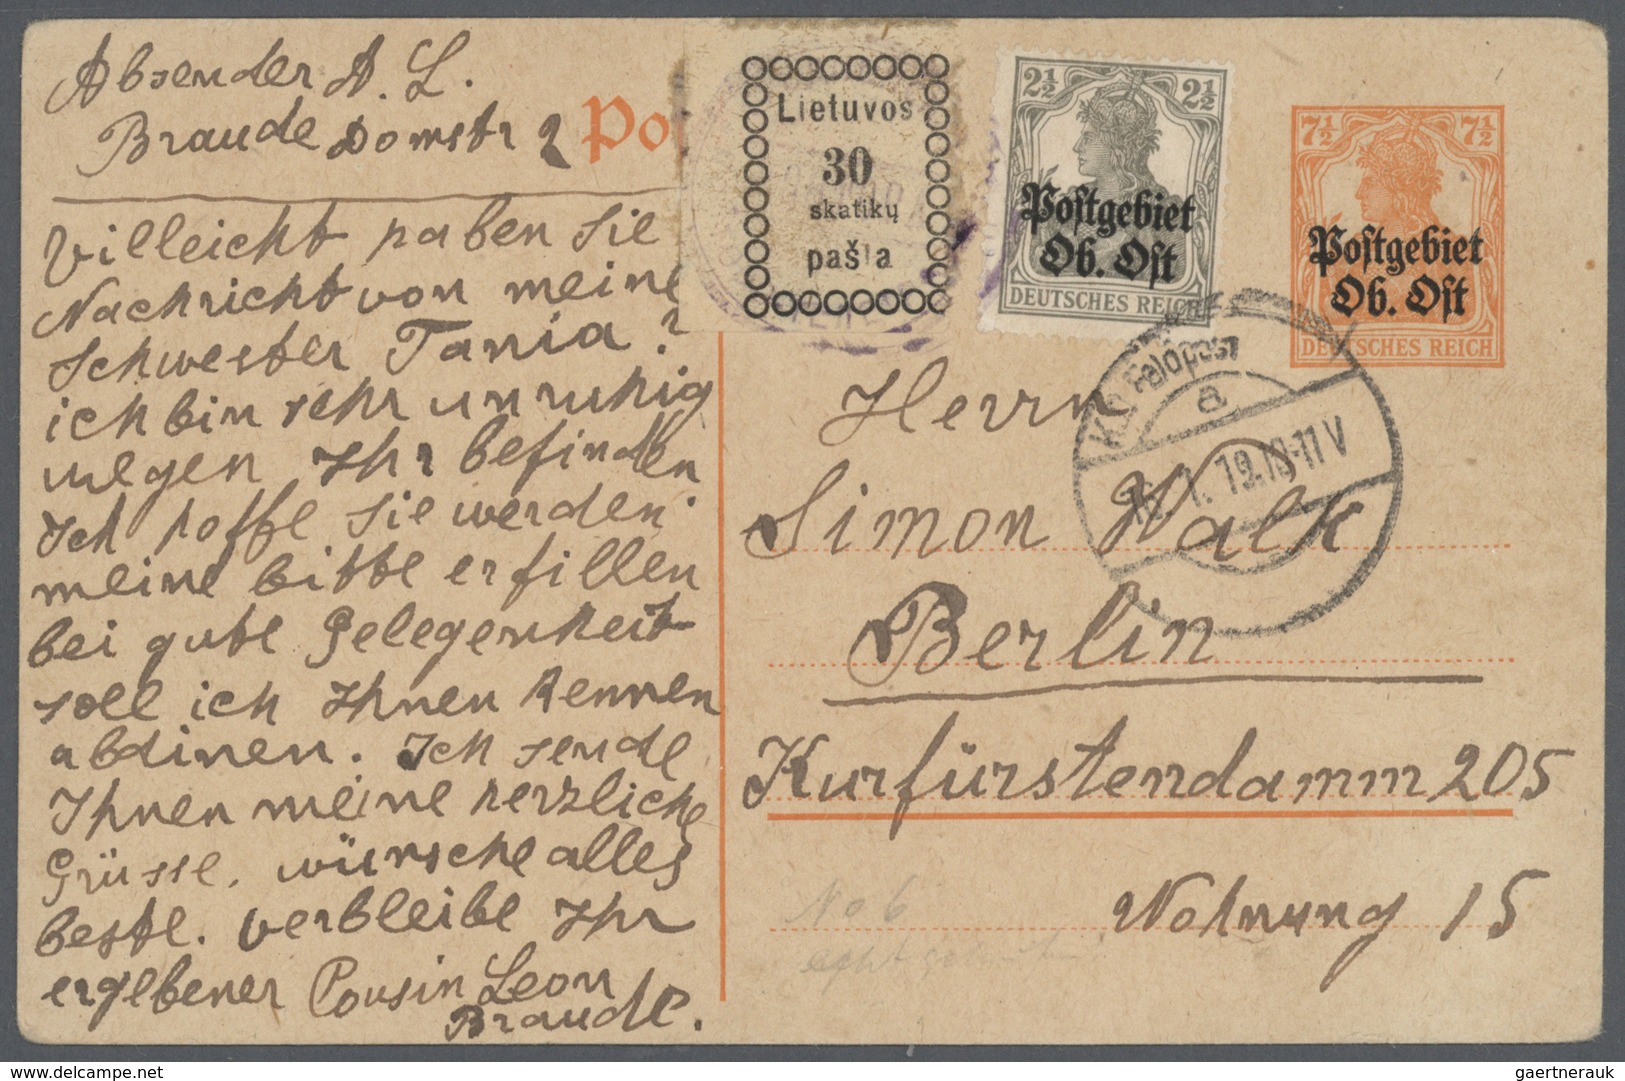 Absender A. L.
Braude Domstr 2
Villeicht haben Sie
Nachricht von meine
Schwester Tania?
ich bin sehr unruhig
wegen Ihr befinden
Ich hoffe Sie werden
meine bitte erfillen
bei gute Gelegenheit
soll ich Ihnen kennen
abdinen. Ich sende
Ihnen meine herzliche
Grüsse. wünsche alles
beste. verbleibe Ihr
ergebener Cousin Leon
Braude.
Po
Lietuvos
30
skatikų
pašta
2½ 2½
Postgebiet
Ob. Ost
DEUTSCHES REICH
7½ 7½
Postgebiet
Ob. Ost
DEUTSCHES REICH
Feldpost
a
1. 19. 10-11 V
Herrn
Simon Walk
Berlin
Kurfürstendamm 205
Wohnung 15
No 6
delcampe.net
gaertnerauk